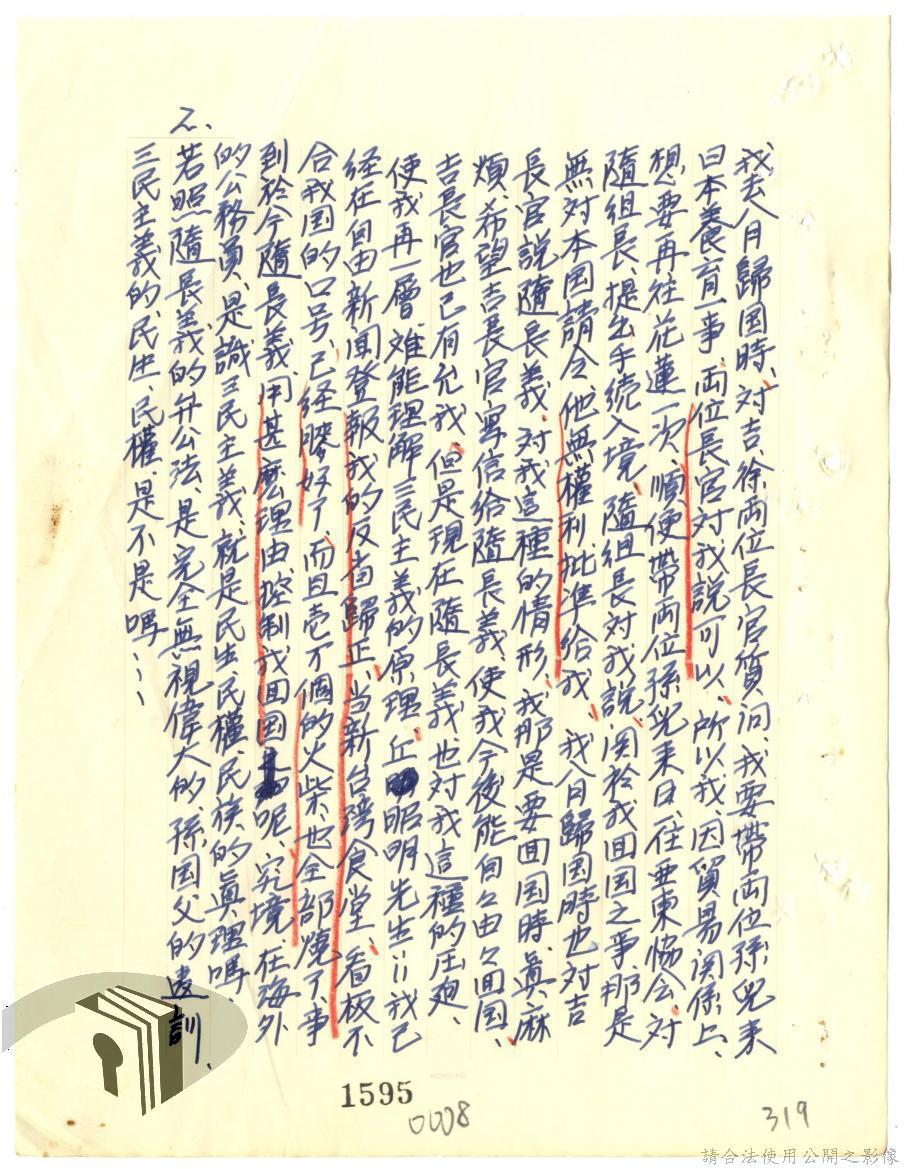 我去八月歸国時、対吉、徐両位長官質问、我要帶両位孫兒来
日本養育一事、両位長官対我説可以、所以我、因貿易関係上、
想要再往花蓮一次、順便帶両位孫兒来日、往亜東協会、対
隨組長、提出手続入境、隨組長対我説、関於我回国之事、那是
無対本国請令、他無權利批準给我、我八月歸国時也対吉
長官説隨長義、対我這種的情形、我那是要回国時、眞麻
煩、希望吉長官寫信給隨長義、使我今後能自々由々回国、
吉長官也已有允我、但是現在隨長義、也対我這種的压廹、
使我再一層、难能理解三民主義的原理、丘昭明先生::我已
经在自由新闻登報我的反歸正、当新台湾食堂、看板不
合我国的口号、已经膠好了、而且壱不個的火柴、也全部燒了、事
到於今隨長義、用甚麽理由、控制我回国呢、究境、在海外
的公務員、是識三民主義、就是民生、民權、民族、的眞理嗎、
乙、
若照隨長義的弁公法、是完全無視偉大的、孫、国父的遺訓、
三民主義的、民生、民權、是不是嗎…
1595
0008
319
KOKUYO
請合法使用公開之影像